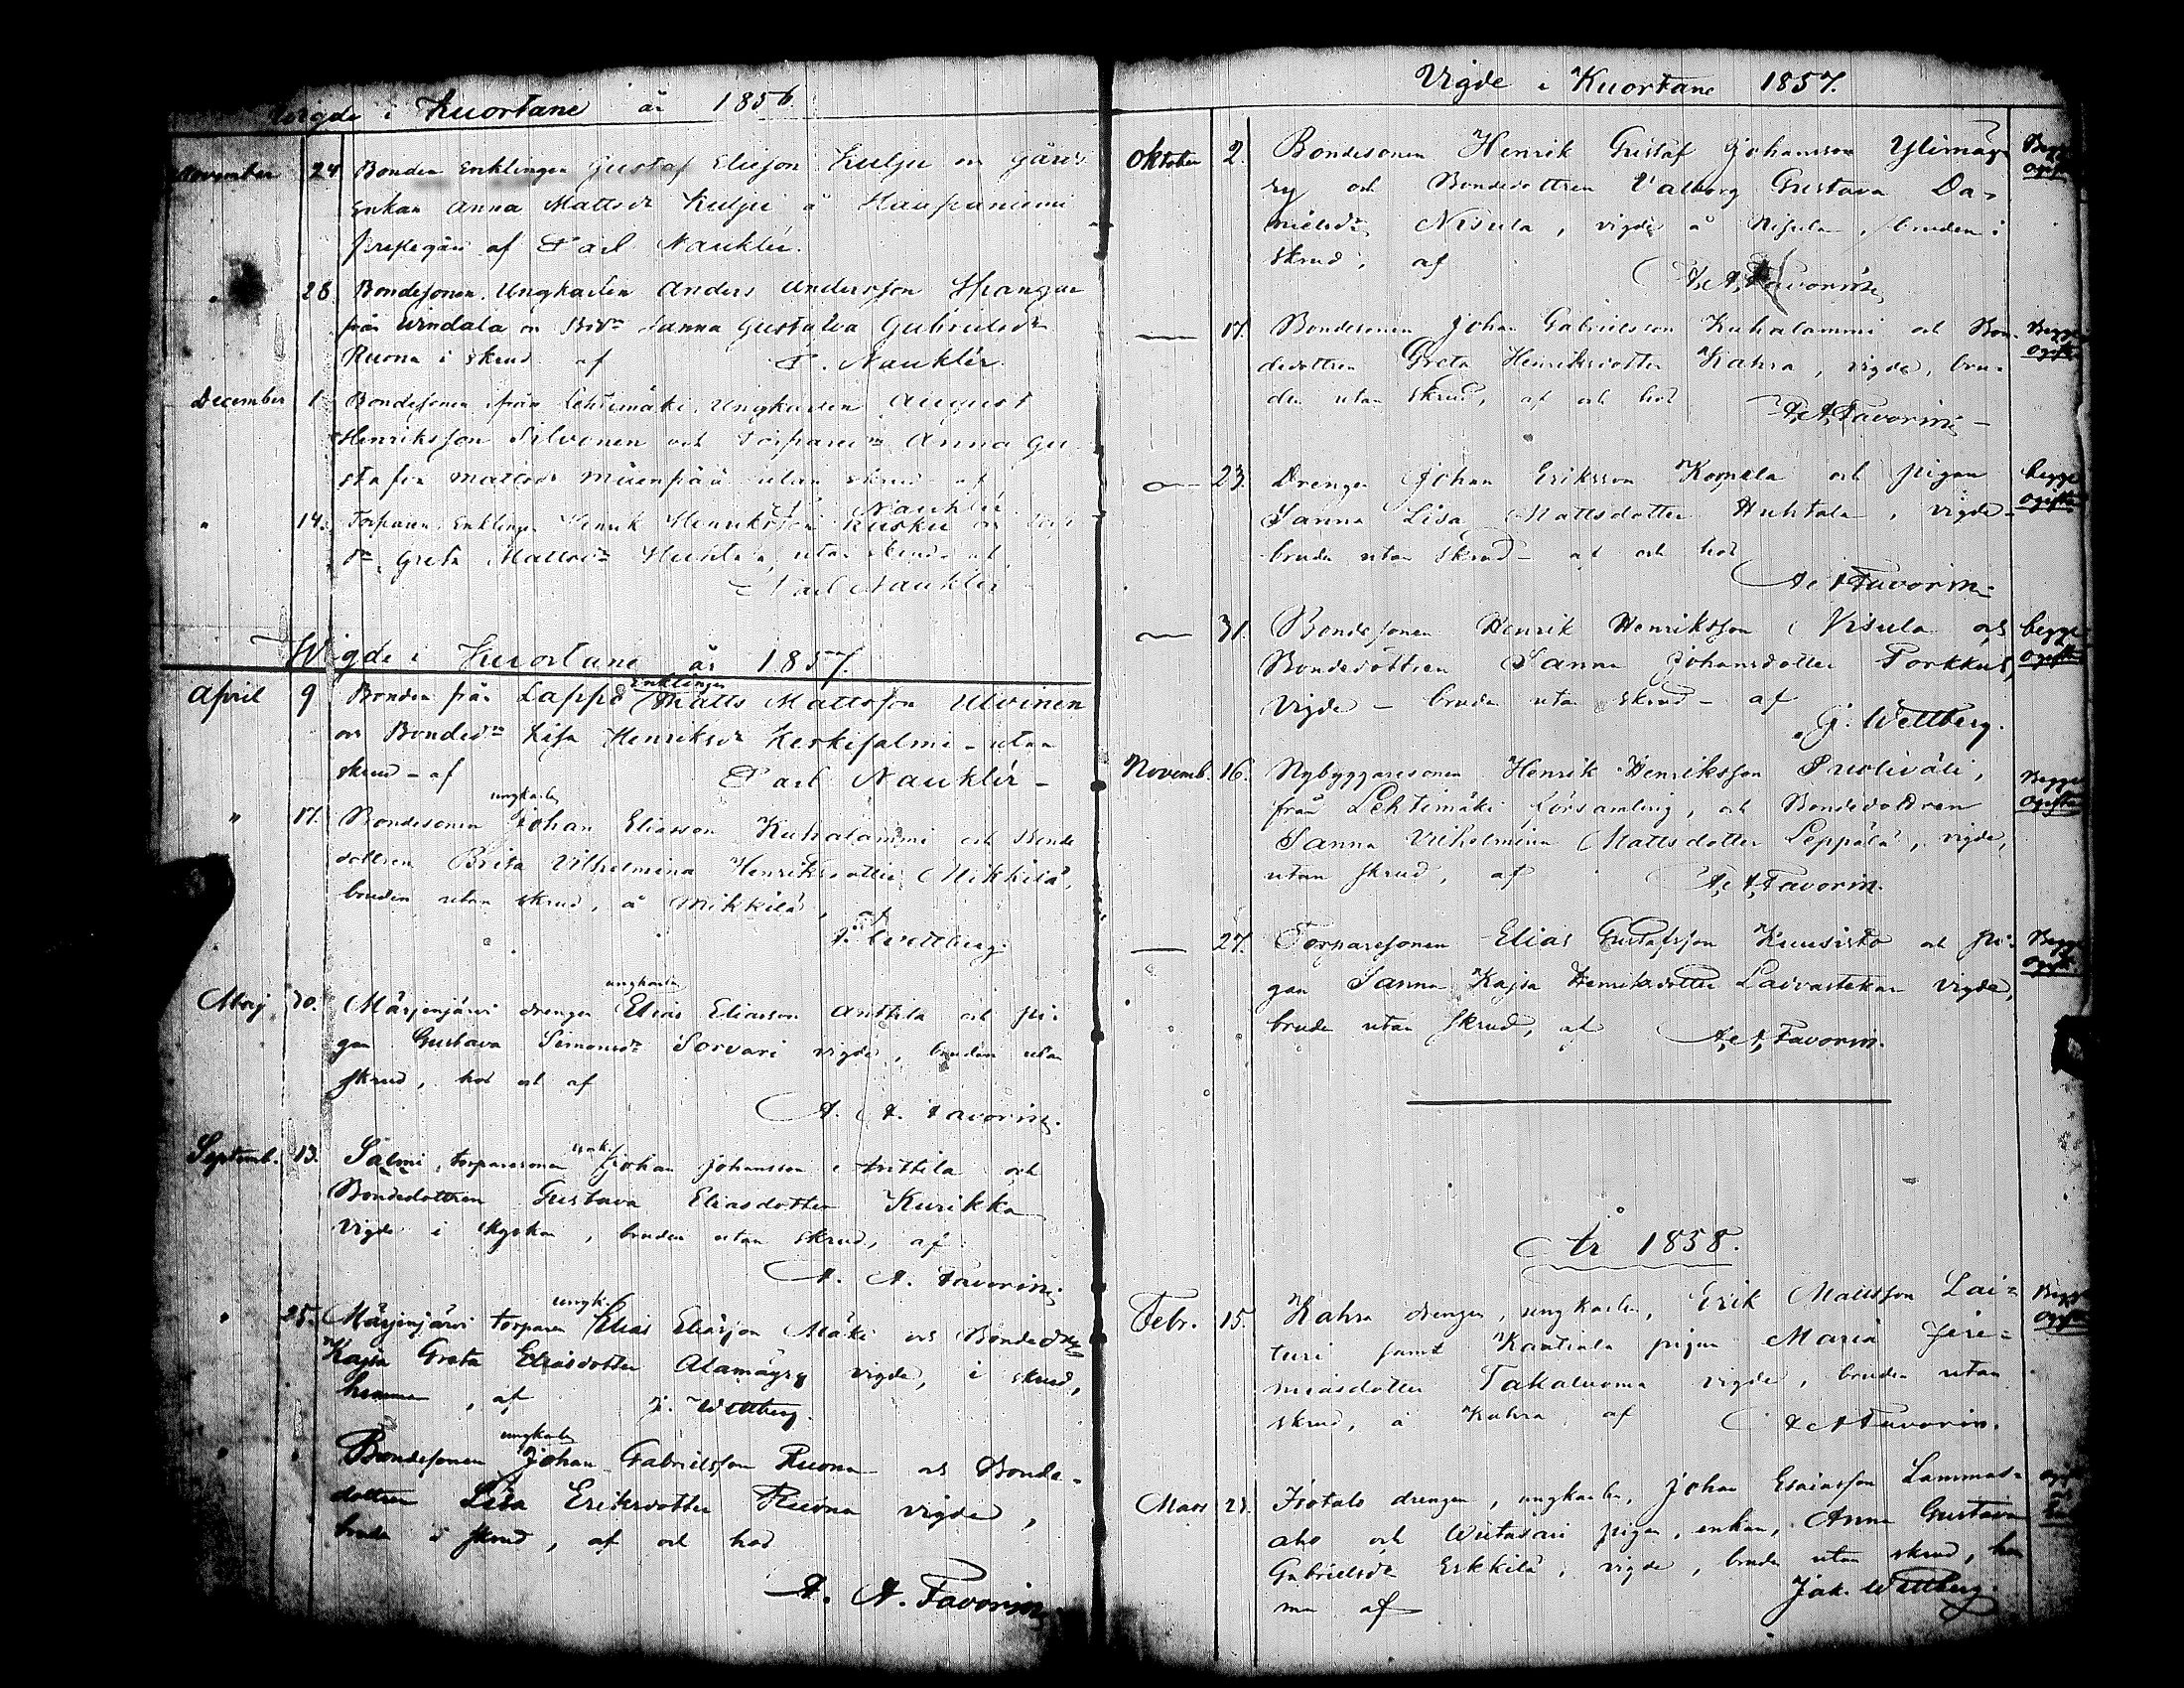 Wigde i Kuortane år 1856.
November 24 Bonden Enklingen Gustaf Eliesson Kulju och
Enkan Anna Mattsdr Kulju å Haapaniemi
af Carl Nauklér.
" 28. Bondesonen, Ungkarlen Anders Andersson Hpangar
från Windala och Bdr Sanna Gustava Gabrielsdr
Ruona i skrud af C. Nauklér.
December 1 Bondesonen från Lehtimäki, Ungkarlen August
Henriksson Silvonen och Torparedr Anna Gu
stafva Mattsdr Mäenpää utan skrud af
C. Nauklér
" 14. Torparen, Enklingen Henrik Henriksson Kusku och
dr Greta Mattsdr Huhtala, utan skrud af
Carl Nauklér
Wigde i Kuortane år 1857.
April 9 Bonden från Lappo Enklingen Matts Mattsson Ulvinen
och Bondedr Lisa Henriksdr Keskisalmi - utan
skrud - af Carl Nauklér -
" 17. Bondesonen ungkarlen Johan Eliasson Kuhalammi och Bonde
dottren Brita Vilhelmina Henriksdotter Mikkilä,
bruden utan skrud, å Mikkilä, af
J. Wettberg.
Maj 30. Märsjenjärvi drengen ungkarlen Elias Eliasson Anttila och pi-
gan Gustava Simonsdr Sorvari vigde, bruden utan
skrud, hos och af
A. A. Favorin.
Septemb. 13. Salmi, torparesonen ungk. Johan Johansson Anttila och
Bondedottren Gustava Eliasdotter Kurikka
vigde i Kyrkan, bruden utan skrud, af
A. A. Favorin.
" 25. Märsjenjärvi torparen ungk. Elias Eliasson Mäki och Bondedr
Kajsa Greta Eliasdotter Alamäyry vigde, i skrud,
hemma, af J. Wettberg.
" " Bondesonen ungkarlen Johan Gabrielsson Ruona och Bonde-
dottren Lisa Eriksdotter Ruona vigde,
bruden i skrud, af och hos
A. A. Favorin.
Vigde i Kuortane 1857.
Oktober 2. Bondesonen Henrik Gustaf Johansson Ylimäy- Begge
ry och Bondedottren Valborg Gustava Da- ogifta
nielsdr Nisula, vigde å Nisula, bruden i
skrud, af A. A. Favorin
— 17. Bondesonen Johan Gabrielsson Kuhalammi och Bon- Begge
dedottren Greta Henriksdotter Kahra, vigde, bru- ogifta
den utan skrud, af och hos A. A. Favorin -
— 23. Drengen Johan Eriksson Korpela och pigan begge
Sanna Lisa Mattsdotter Huhtala, vigde - ogifta
bruden utan skrud - af och hos
A. A. Favorin.
— 31. Bondesonen Henrik Henriksson Nisula och begge
Bondedottren Sanna Johansdotter Porkkus, ogifta
vigde - bruden utan skrud - af
J. Wettberg.
Novemb. 16. Nybyggaresonen Henrik Henriksson Puoliväli, Begge
från Lehtimäki församling, och Bondedottren ogifta
Sanna Vilhelmina Mattsdotter Leppälä, vigde,
utan skrud, af A. A. Favorin.
— 27. Torparesonen Elias Gustafsson Kuusisto och pi- Begge
gan Sanna Kajsa Henriksdotter Laivastekar vigde, ogift
bruden utan skrud, af A. A. Favorin.
År 1858.
Febr. 15. Kahra drengen, ungkarlen, Erik Mattsson Lai- Begge
turi samt Kaatiala pigan Maria Jere- ogifta
miasdotter Takaluoma vigde, bruden utan
skrud, å Kahra, af A. A. Favorin.
Mars 21. Isotalo drengen, ungkarlen, Johan Esaiasson Lammas-
aho och Wiitasari pigan, enkan, Anna Gustava
Gabrielsdr Erkkilä, vigde, bruden utan skrud, hem
ma af Jak. Wettberg.